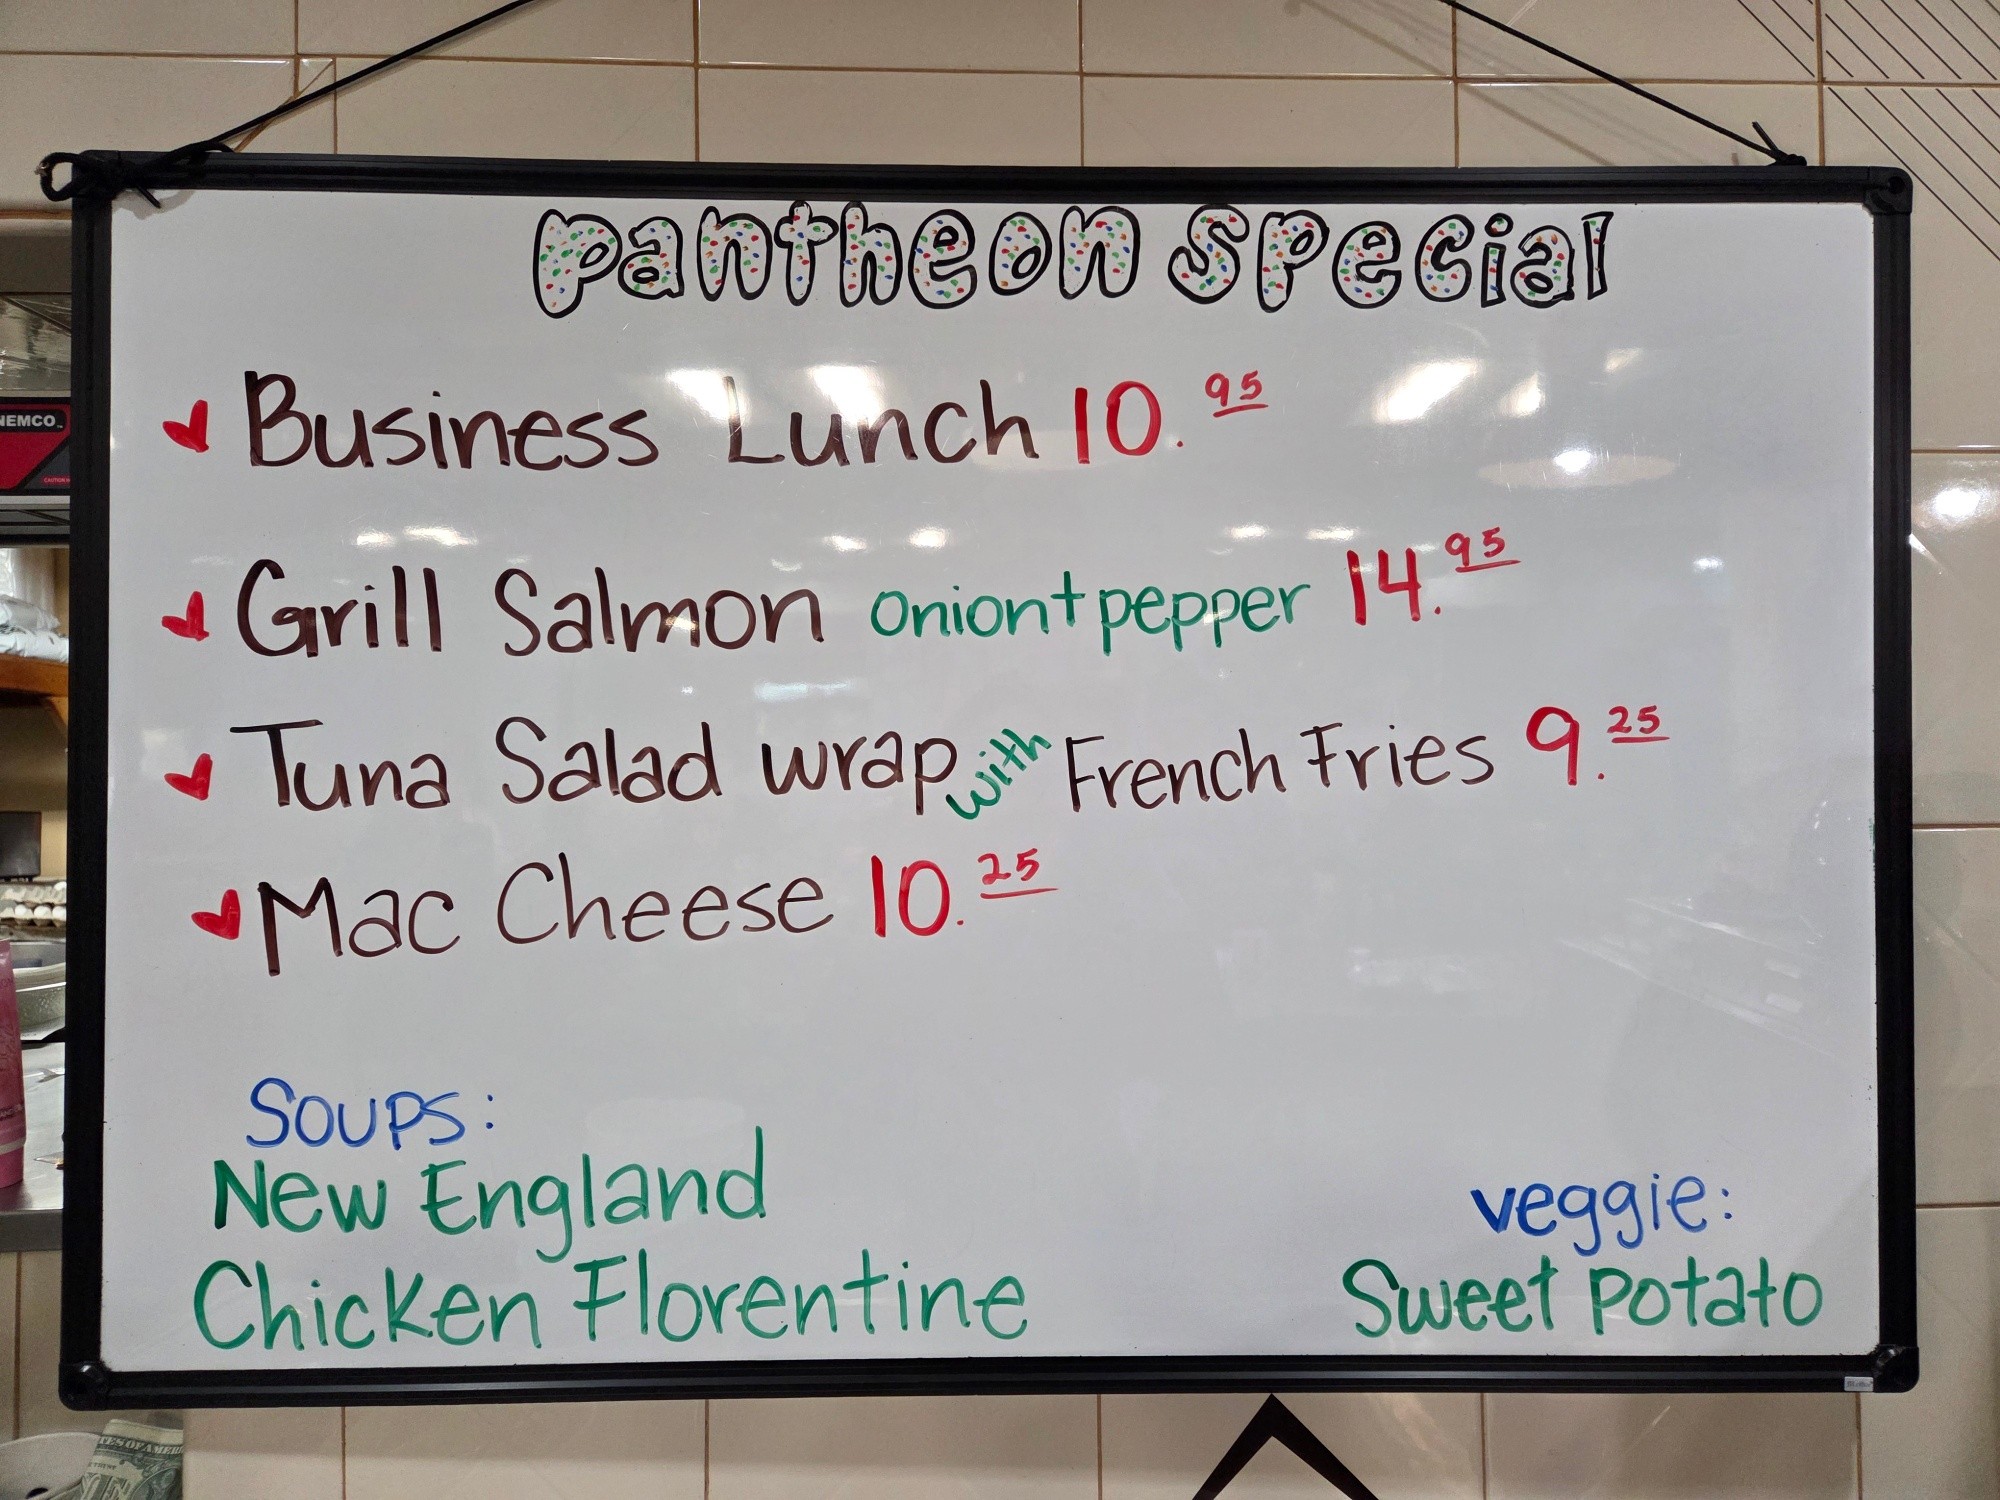 pantheon special
Business Lunch 10.95
Grill Salmon onion+pepper 14.95
Tuna Salad wrap with French Fries 9.25
Mac Cheese 10.25
Soups:
New England
Chicken Florentine
veggie:
Sweet potato
NEMCO
CAUTION
TES OF AMERI